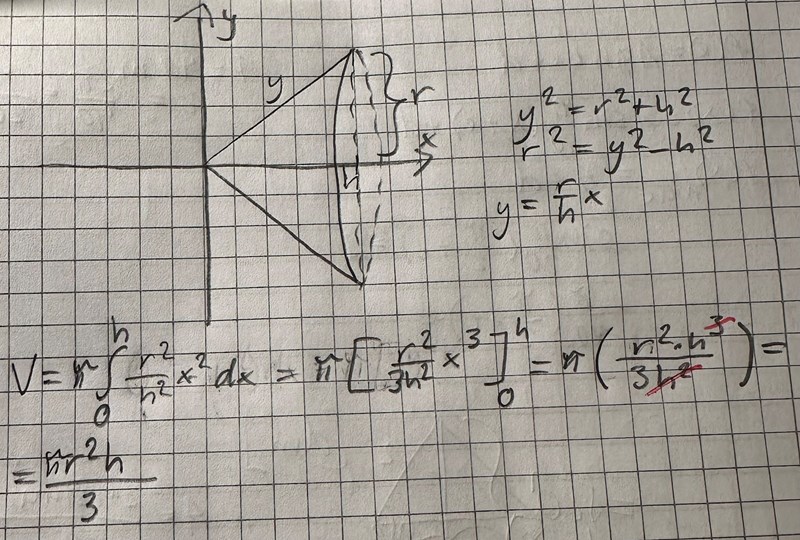 y
y
r
x
h
y² = r² + h²
r² = y² - h²
y = r/h x
V = π ∫₀ʰ r²/h² x² dx = π [ r²/3h² x³ ]₀ʰ = π ( r²·h³/3h² ) =
= πr²h/3